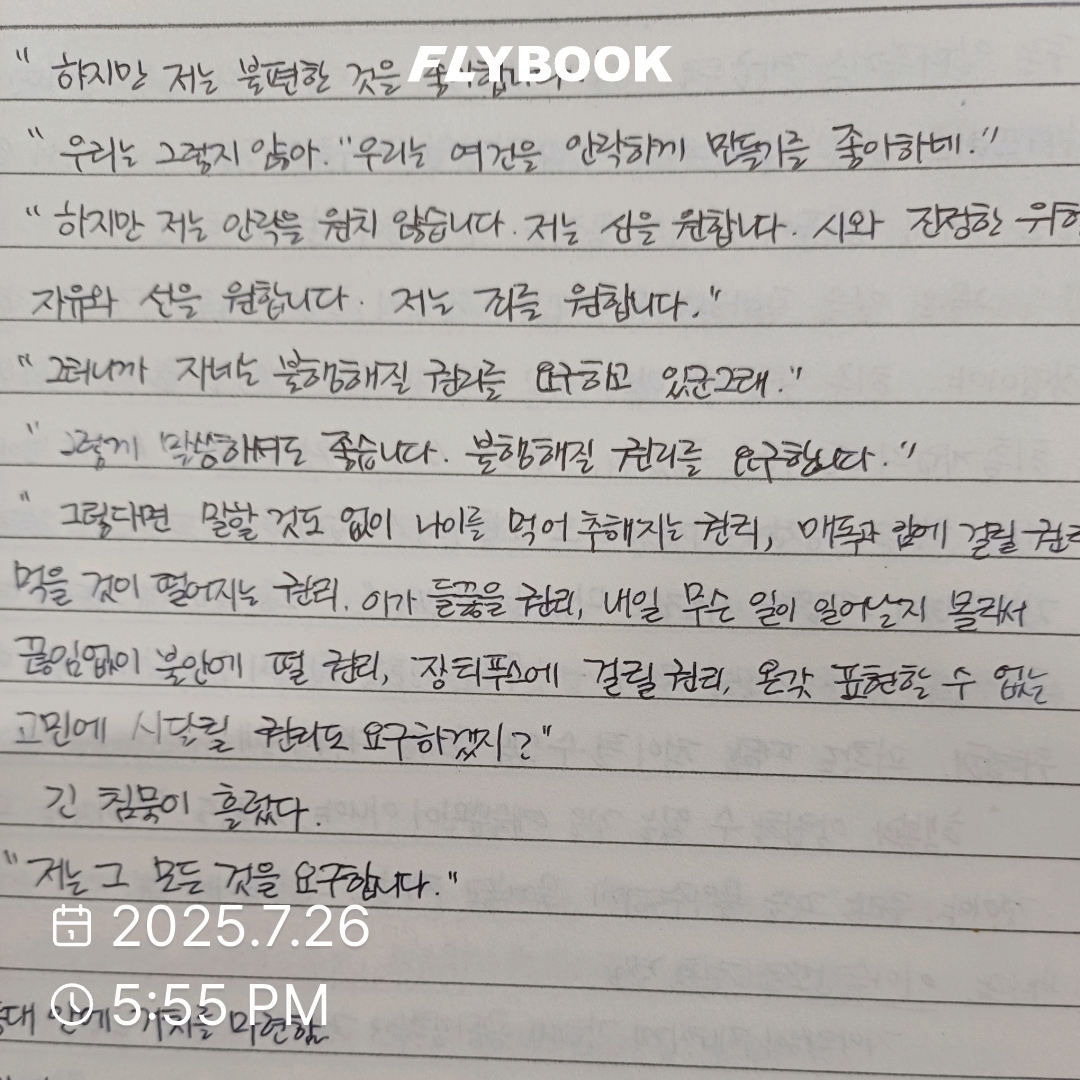 FLYBOOK
" 하지만 저는 불편한 것을 좋아합니다."
" 우리는 그렇지 않아." 우리는 여건을 안락하게 만들기를 좋아하네."
" 하지만 저는 안락을 원치 않습니다. 저는 신을 원합니다. 시와 진정한 위험
자유와 선을 원합니다. 저는 죄를 원합니다."
" 그러니까 자네는 불행해질 권리를 요구하고 있군그래."
" 그렇게 말씀하셔도 좋습니다. 불행해질 권리를 요구합니다."
" 그렇다면 말할 것도 없이 나이를 먹어 추해지는 권리, 매독과 암에 걸릴 권리
먹을 것이 떨어지는 권리, 이가 들끓을 권리, 내일 무슨 일이 일어날지 몰라서
끊임없이 불안에 떨 권리, 장티푸스에 걸릴 권리, 온갖 표현할 수 없는
고민에 시달릴 권리도 요구하겠지?"
긴 침묵이 흘렀다.
" 저는 그 모든 것을 요구합니다."
2025.7.26
5:55 PM
안에 거처를 마련함